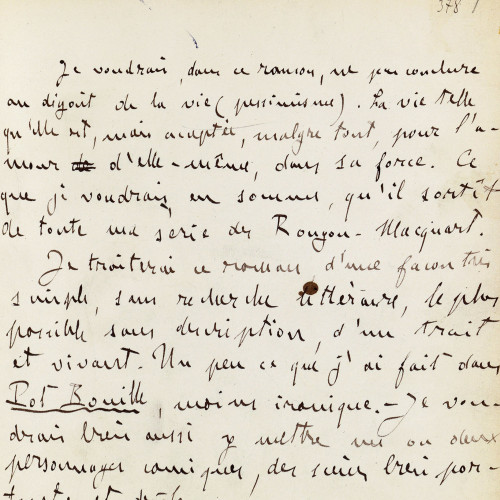 378 /
Je voudrais, dans ce roman, ne pas conclure
au dégoût de la vie (pessimisme). La vie telle
qu'elle est, mais acceptée, malgré tout, pour l'a-
mour d'elle-même, dans sa force. Ce
que je voudrais, en somme, qu'il sortît
de toute ma série des Rougon-Macquart.
Je traiterai ce roman, d'une façon très
simple, sans recherche littéraire, le plus
possible sans description, d'un trait
et vivant. Un peu ce que j'ai fait dans
Pot Bouille, moins ironique. - Je vou-
drais bien aussi y mettre un ou deux
personnages comiques, des scènes bien por-